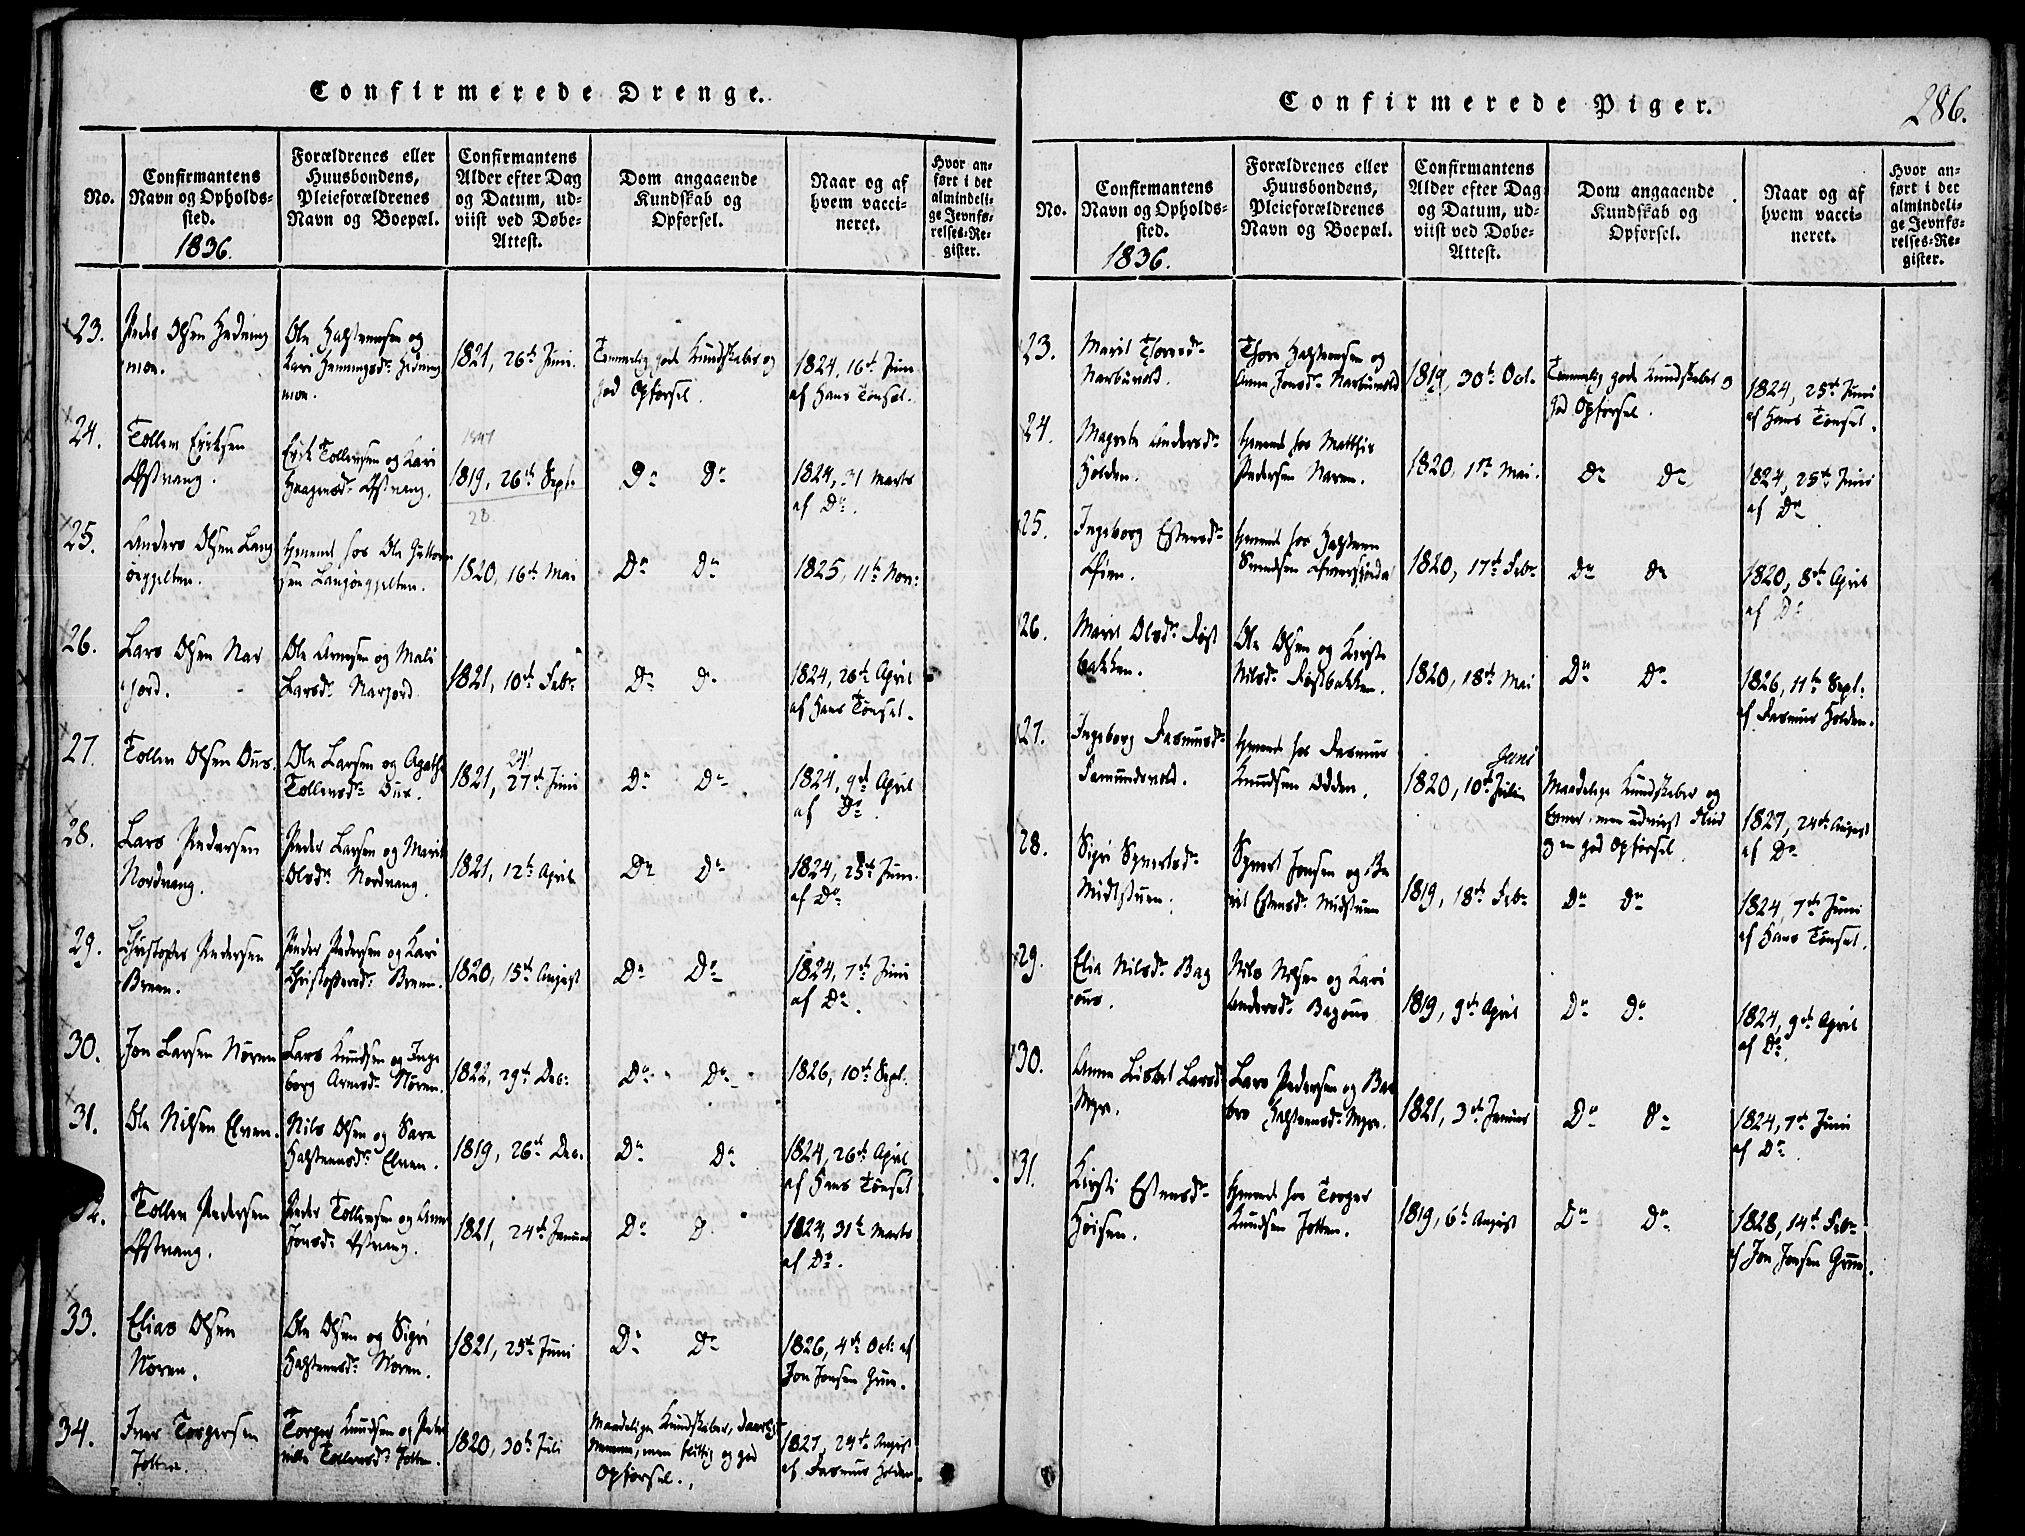 Confirmerede Drenge.
No.
Confirmantens
Navn og Opholds-
sted.
1836.
Forældrenes eller
Huusbondens,
Pleieforældrenes
Navn og Boepæl.
Confirmantens
Alder efter Dag
og Datum, ud-
viist ved Døbe-
Attest.
Dom angaaende
Kundskab og
Opførsel.
Naar og af
hvem vacci-
neret.
Hvor an-
ført i det
almindeli-
ge Jevnfø-
relses-Re-
gister.
23.
Peder Olsen Hedning
moe.
Ole Halstensen og
Kari Henningsdr. Hedning
moe.
1821, 26de Juni.
Temmelig gode Kundskaber og
god Opførsel.
1824, 16de Juni
af Hans Tønset.
24.
Tollen Ericksen
Østvang.
Erik Tollensen og Kari
Haagensdr. Østvang.
1819, 26de Sept.
28.
Do Do
1824, 31 Marts
af Do.
25.
Anders Olsen Lang
øeggelten.
hjemme hos Ole
sen Langøeggelten.
1820, 16de Mai
Do Do
1825, 11te Nov:
26.
Lars Olsen Nar
jord.
Ole Arnesen og Mali
Larsdr. Narjord.
1821, 10de Febr.
Do Do
1824, 26de April
af Hans Tønset.
27.
Tollen Olsen Ous.
Ole Larsen og Agathe
Tollensdr. Ous.
24
1821, 27de Juni
Do Do
1824, 9de April
af Do.
28.
Lars Pedersen
Nordvang.
Peder Larsen og Marit
Olsdr. Nordvang.
1821, 12te April
Do Do
1824, 25de Juni.
af Do
29.
Christopher Pedersen
Breen.
Peder Pedersen og Kari
Christophersdr. Breen.
1820, 15de August
Do Do
1824, 7de Juni
af Do.
30.
Jon Larsen Nøren
Lars Knudsen og Inge
borg Arnesdr. Nøren.
1822, 29de Dec:
Do Do
1826, 10de Sept.
31.
Ole Nilsen Elven.
Nils Olsen og Sara
Halstensdr. Elven.
1819, 26de Dec.
Do Do
1824, 26de April
af Hans Tønset
32.
Tollen Pedersen
Østvang.
Peder Tollensen og Anne
Jonsdr. Østvang.
1821, 24de Januar
Do D
1824, 31te Marts
af Do.
33.
Elias Olsen
Noren.
Ole Olsen og Sigri
Halstensdr. Noren.
1821, 25de Juni
Do Do
1826, 4de Oct: af
Jon Jonsen Grue.
34.
Iver Torgersen
Jotten.
Torger Knudsen og Peder
nille Tollensdr. Jotten.
1820, 30te Juli
Maadelige Kundskaber, daarlig
Nemme, men flittig og god
Opførsel.
1827, 24de August
af Rasmus Holden.
Confirmerede Piger.
286.
No.
Confirmantens
Navn og Opholds-
sted.
1836.
Forældrenes eller
Huusbondens,
Pleieforældrenes
Navn og Boepæl.
Confirmantens
Alder efter Dag
og Datum, ud-
viist ved Døbe-
Attest.
Dom angaaende
Kundskab og
Opførsel.
Naar og af
hvem vacci-
neret.
Hvor an-
ført i det
almindeli-
ge Jevnfø-
relses-Re-
gister.
23.
Marit Thoresdr.
Narbuvold.
Thore Halstensen og
Anne Jonsdr. Narbuvold
1819, 30te Oct.
Temmelig gode Kundskaber og
god Opførsel.
1824, 25de Juni
af Hans Tønset.
24.
Magrete Andersdr.
Holden.
hjemme hos Matthis
Pedersen Naren.
1820, 1ste Mai.
Do Do
1824, 25de Juni
af Do
25.
Ingeborg Estensdr.
Øien.
hjemme hos Halsten
Svendsen
1820, 17de Febr.
Do Do
1820, 8de April
af Do
26.
Marit Olsdr. Røst
bakken.
Ole Olsen og Kirsti
Nilsdr. Røstbakken.
1820, 18de Mai
Do Do
1826, 11te Sept:
af Rasmus Holden.
27.
Ingeborg Rasmusdr.
Femundsvold.
hjemme hos Rasmus
Knudsen Odden.
Juni
1820, 10de Julii
Maadelige Kundskaber og
Evner, men udviist Flid
og en god Opførsel.
1827, 24de August
af Do
28.
Sigri Syvertsdr.
Midtstuen.
Syvert Jonsen og Be
rit Estensdr. Midstuen
1819, 18de Febr.
Do Do
1824, 7de Juni
af Hans Tønset.
29.
Elia Nilsdr. Bag
ous.
Nils Nilsen og Kari
Andersdr. Bagous
1819, 9de April
Do Do
1824, 9de April
af Do.
30.
Anne Lisbet Larsdr.
Myre.
Lars Pedersen og Bar
bro Halstensdr. Myre.
1821, 3de Januar
Do Do
1824, 7de Juni
af Do.
31.
Kirsti Estensdr.
Høisen.
hjemme hos Torger
Knudsen Jotten.
1819, 6te August
Do Do
1828, 14de Febr.
af Jon Jonsen Grue.